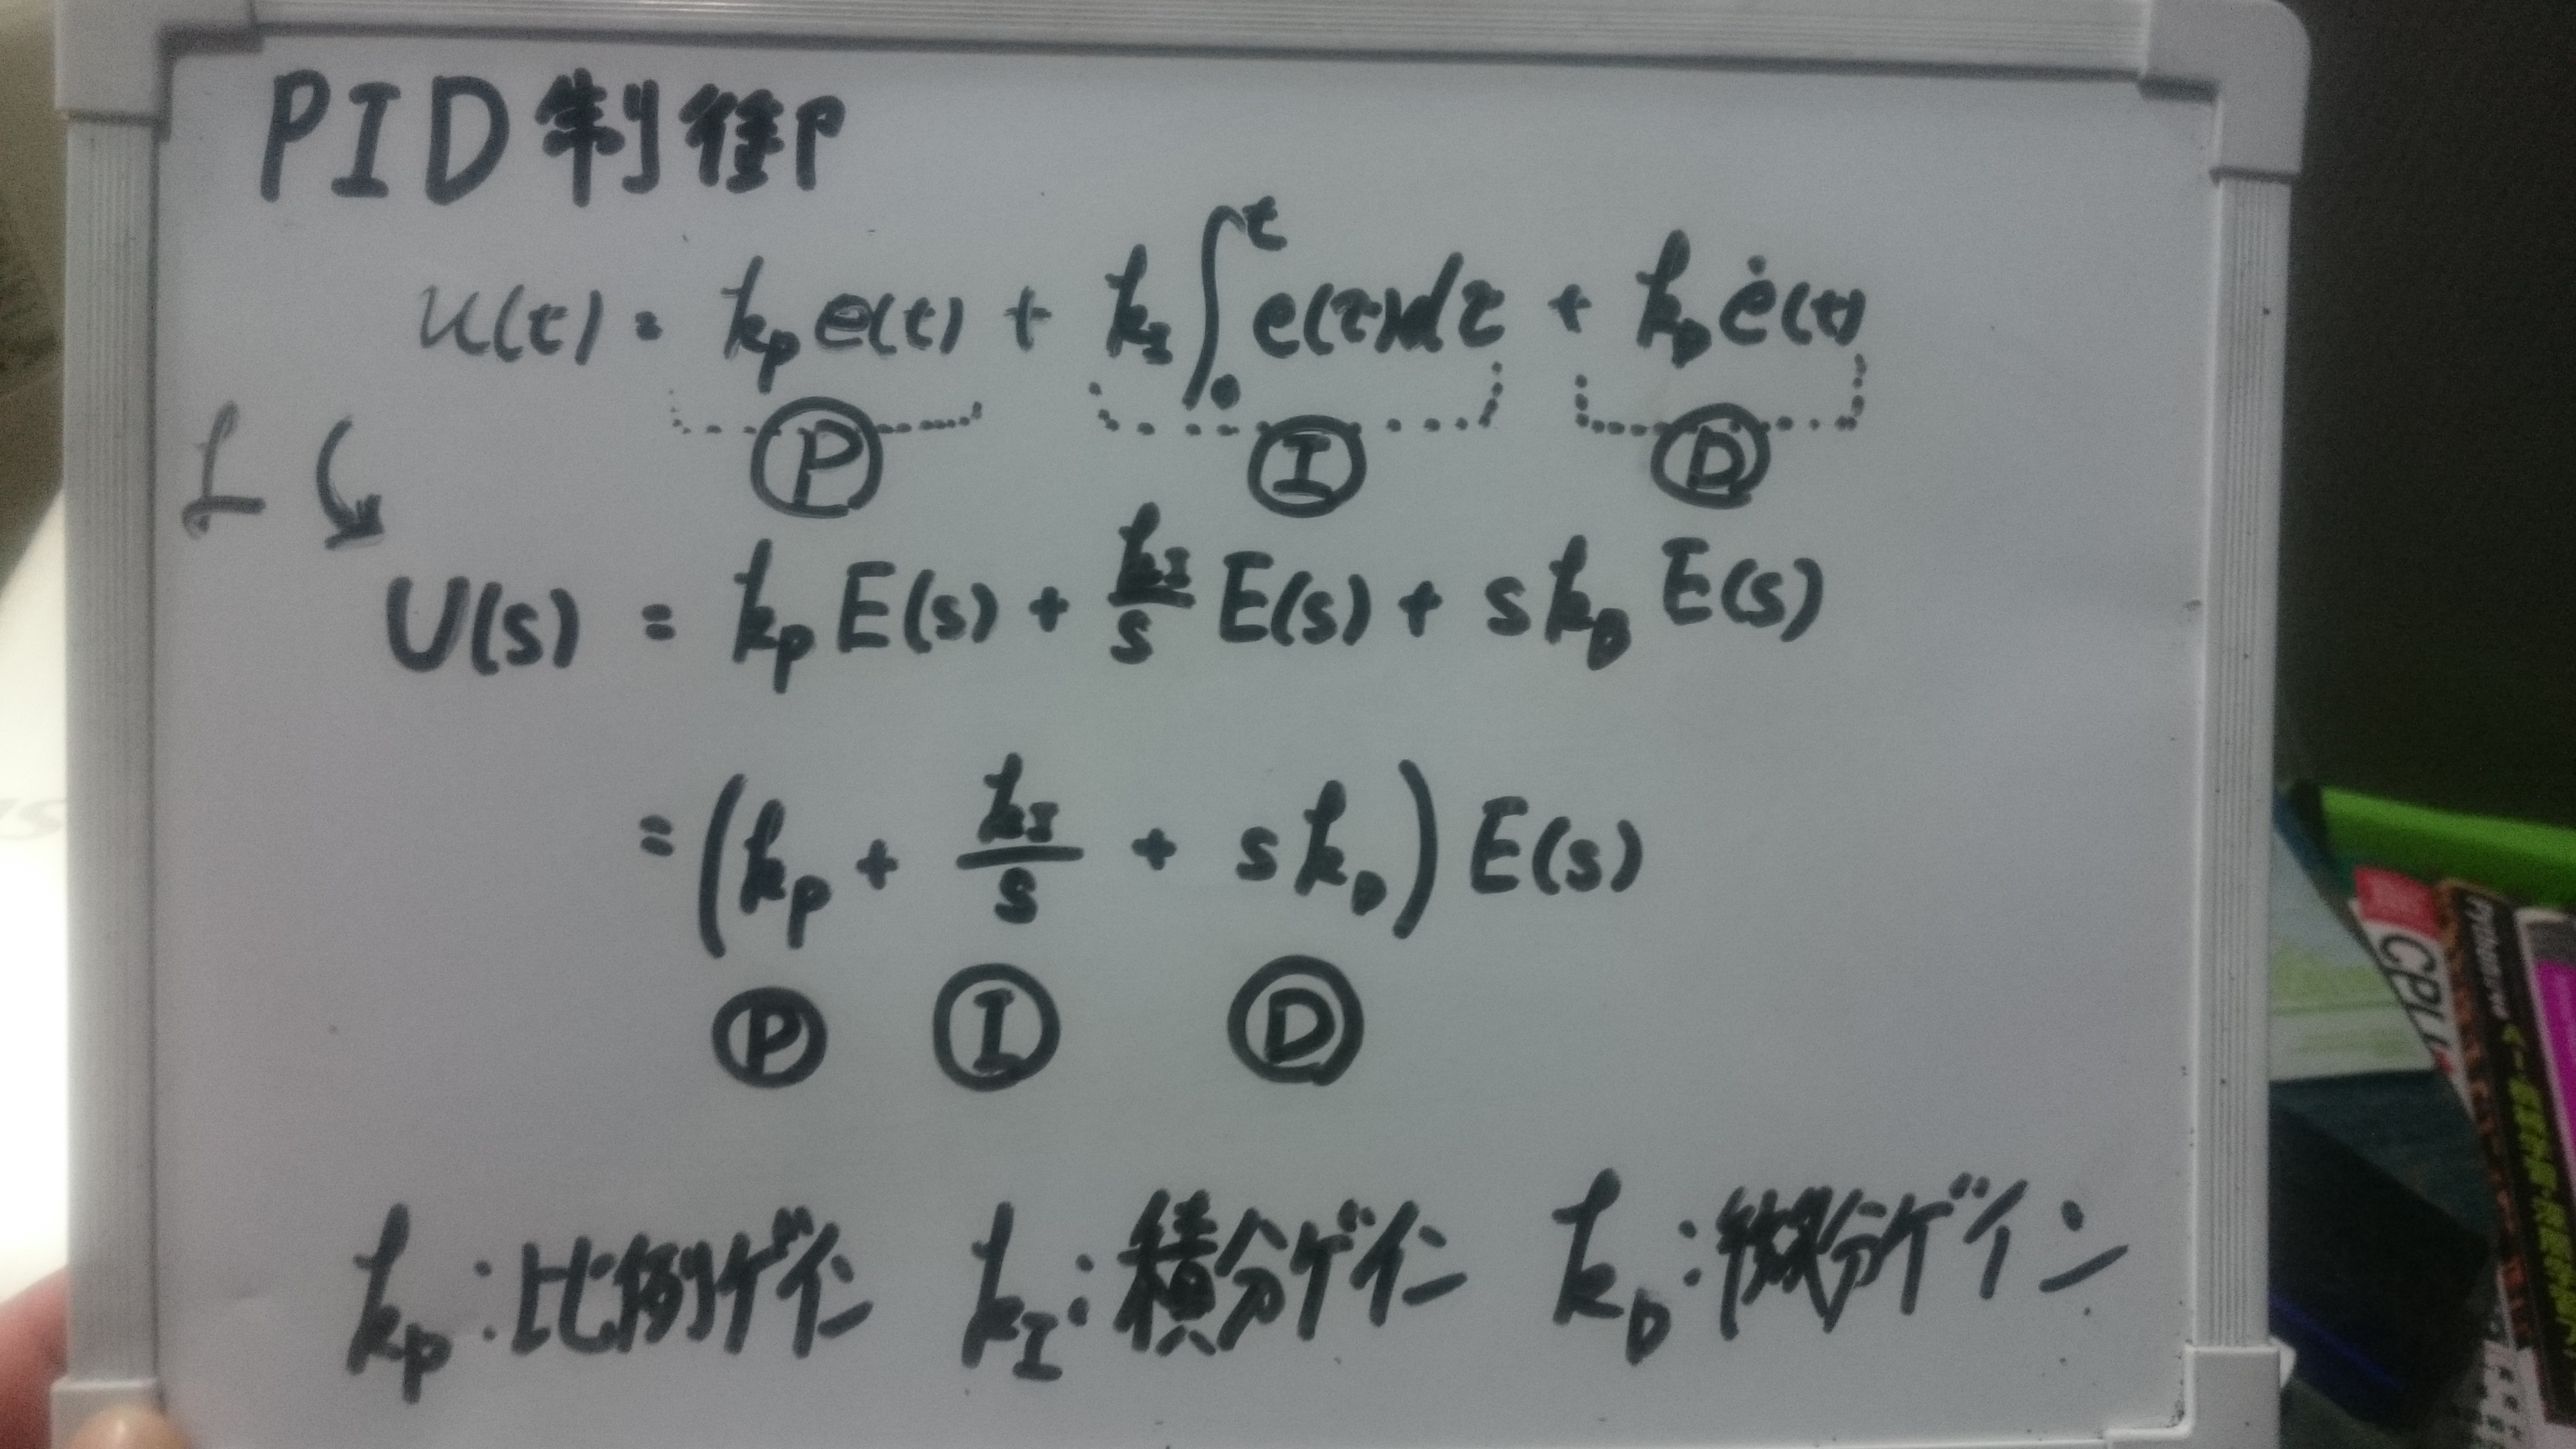 PID制御
u(t) = kp e(t) + kI ∫0^t e(τ)dτ + kD ė(t)
P I D
ℒ
U(s) = kp E(s) + kI/s E(s) + s kD E(s)
= (kp + kI/s + s kD) E(s)
P I D
kp:比例ゲイン kI:積分ゲイン kD:微分ゲイン
CPU